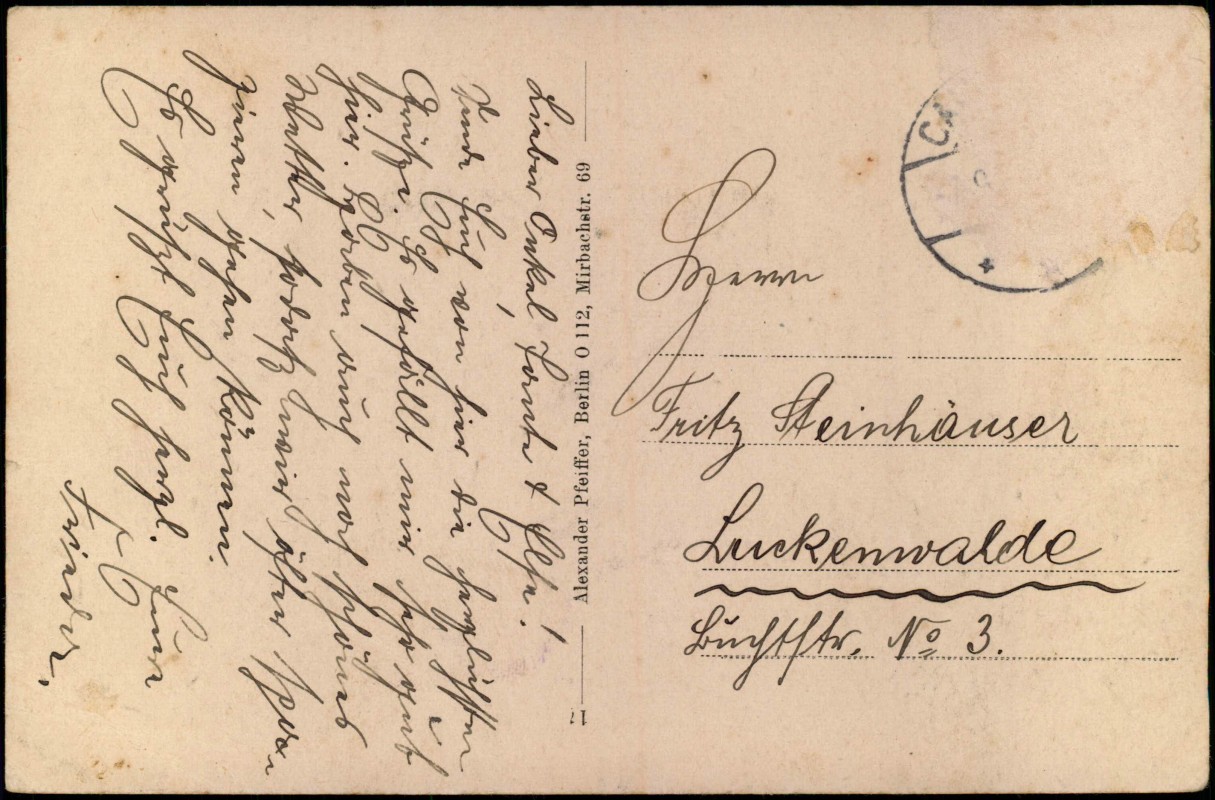 Lieber Onkel, Tante & Ilse!
Sende Euch von hier die herzlichsten
Grüße. Es gefällt mir sehr gut
hier. Haben auch noch schönes
Wetter, sodaß wir öfter spa-
zieren gehen können.
Es grüßt Euch herzl. Eure
Frieder.
Alexander Pfeiffer, Berlin O 112, Mirbachstr. 69
17
Herrn
Fritz Steinhäuser
Luckenwalde
Buchtstr. No 3.